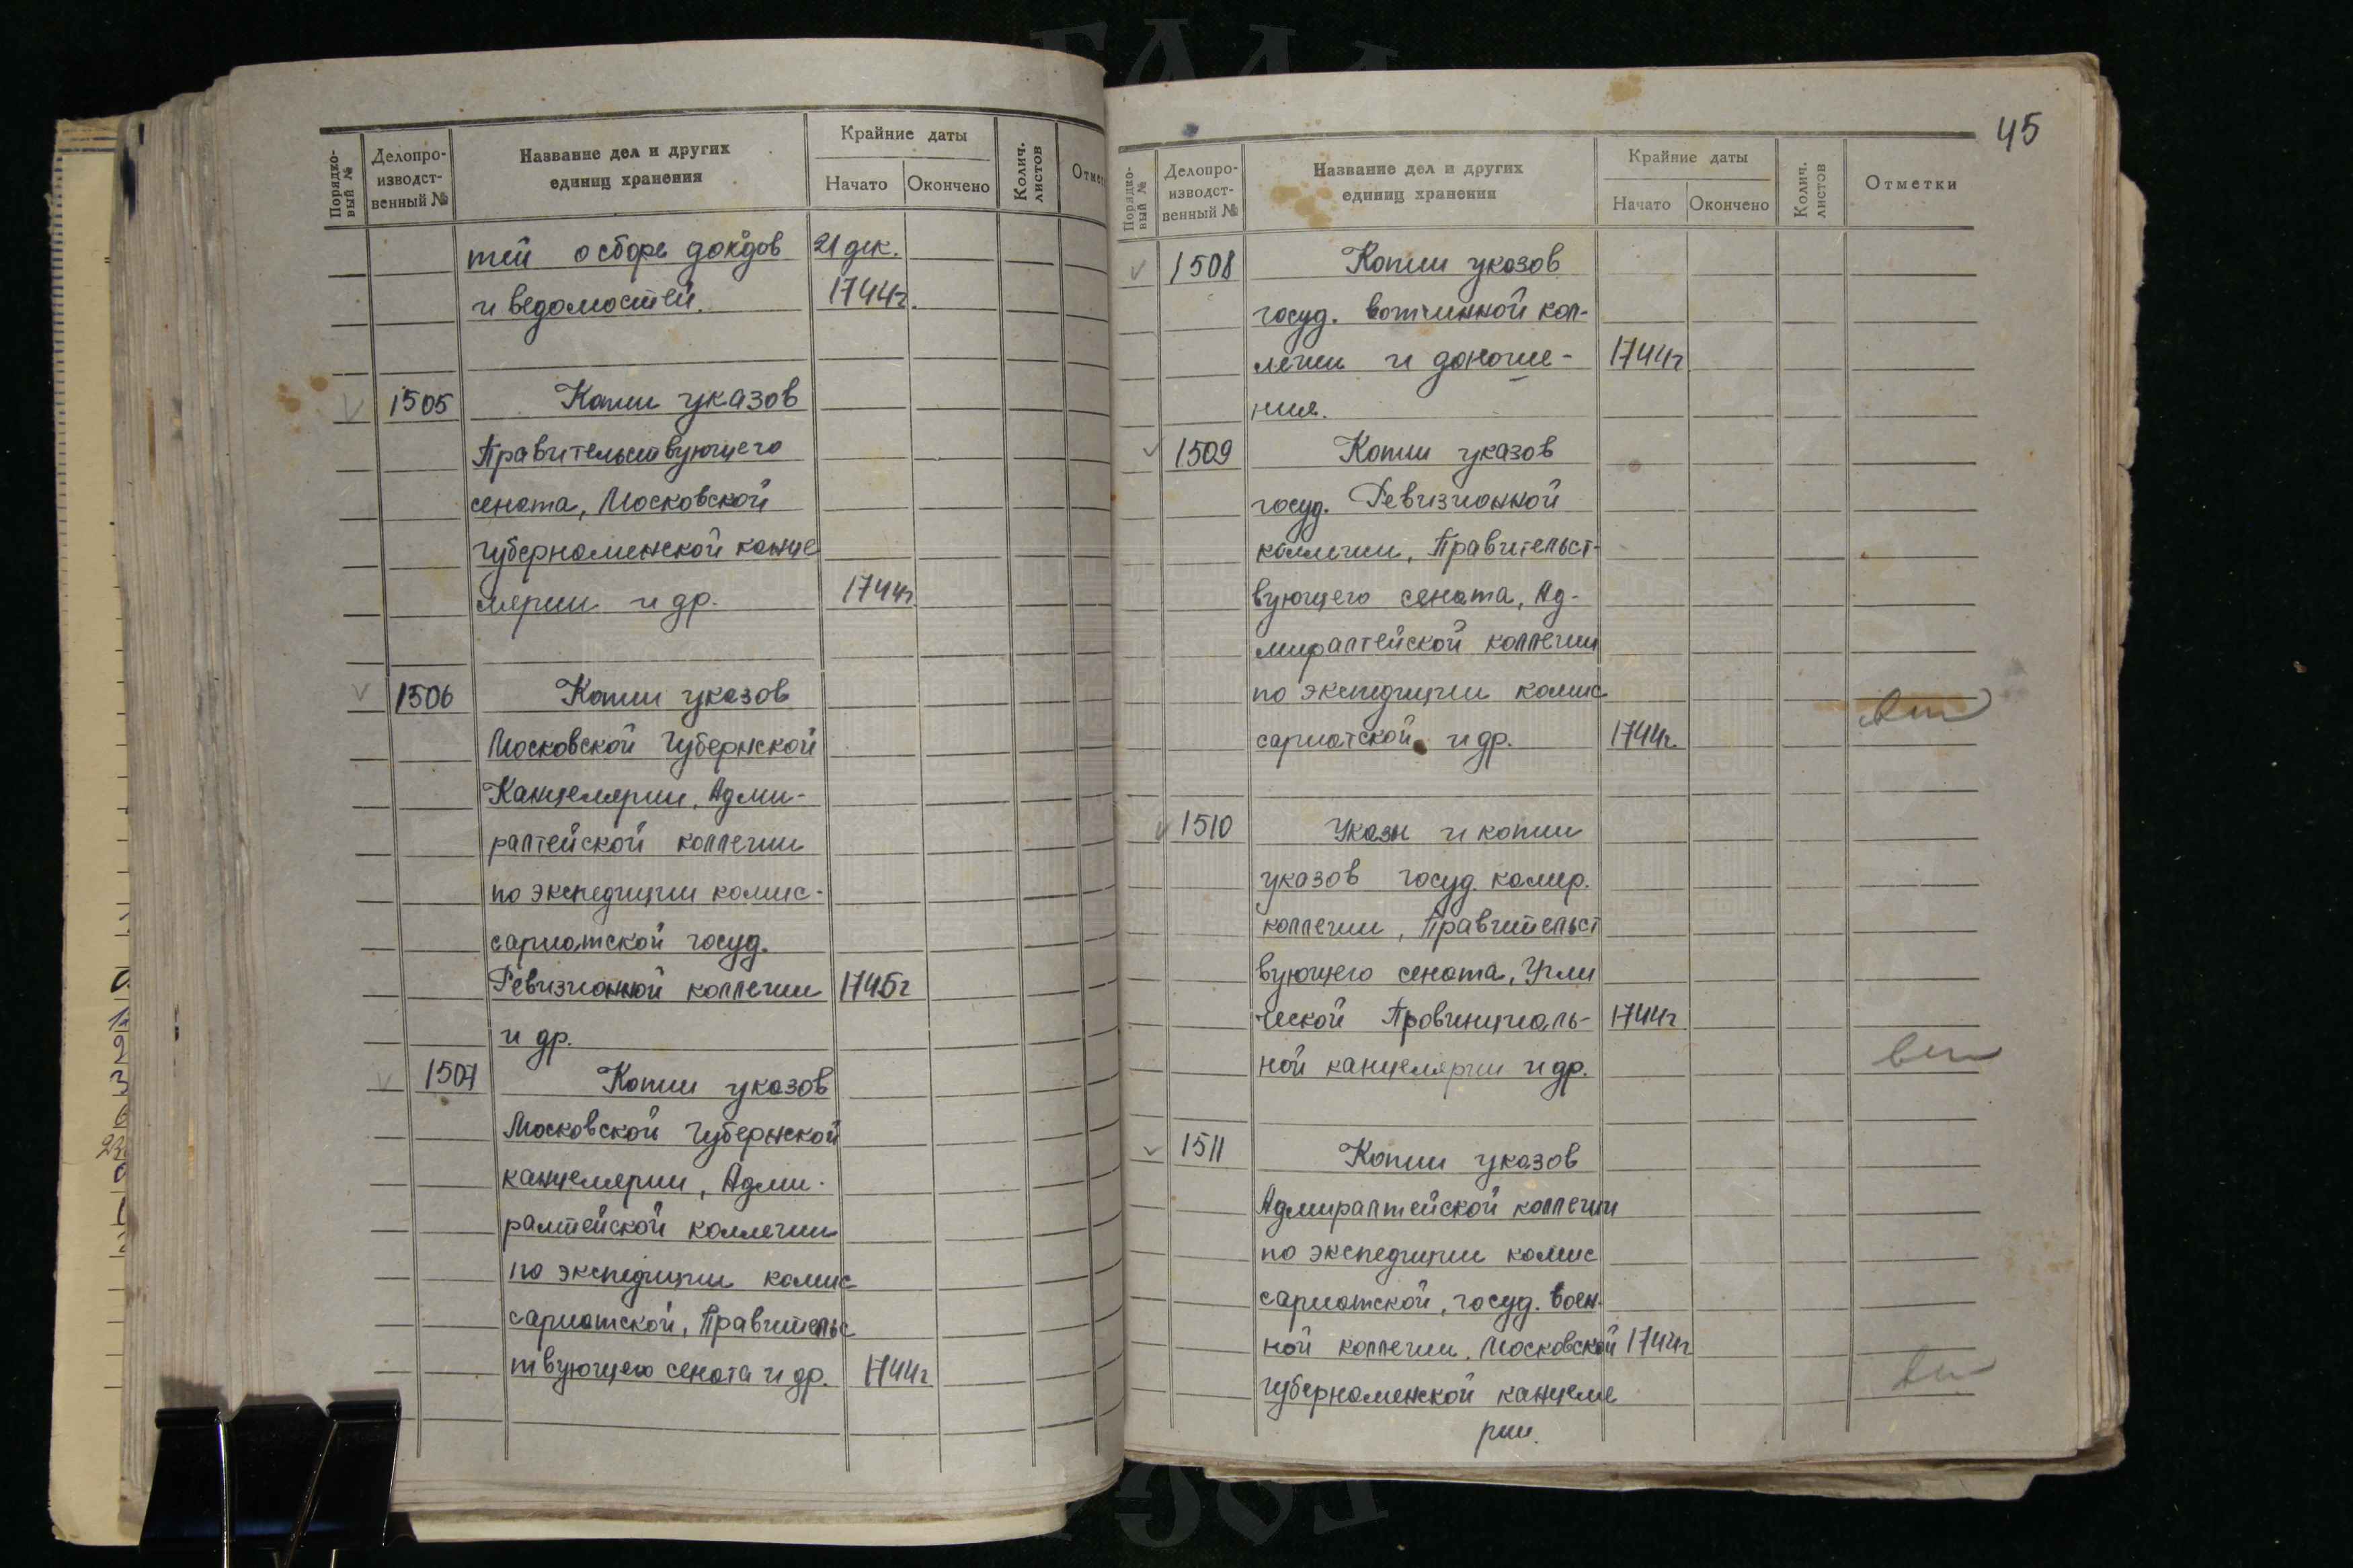 Порядко-
вый №
Делопро-
изводст-
венный №
Название дел и других
единиц хранения
Крайние даты
Начато
Окончено
Колич.
листов
Отмет
тей о сборе дохдов 21 дек.
и ведомостей. 1744г.
1505 Копии указов
Правительствующего
сената, Московской
губерноменской канце
лярии и др. 1744г
1506 Копии указов
Московской Губернской
Канцелярии, Адми-
ралтейской коллегии
по экспедиции комис-
сариатской госуд.
Ревизионной коллегии 1745г
и др.
1507 Копии указов
Московской Губернской
канцелярии, Адми-
ралтейской коллегии
по экспедиции комис
сариатской, Правительс
твующего сената и др. 1744г
45
Порядко-
вый №
Делопро-
изводст-
венный №
Название дел и других
единиц хранения
Крайние даты
Начато
Окончено
Колич.
листов
Отметки
1508 Копии указов
госуд. вотчинной кол-
легии и доноше- 1744г
ния.
1509 Копии указов
госуд. Ревизионной
коллегии, Правительст-
вующего сената, Ад-
миралтейской коллегии
по экспедиции комис
сариатской и др. 1744г.
1510 Указы и копии
указов госуд. камер.
коллегии, Правительст
вующего сената, Угли
ческой Провинциаль- 1744г
ной канцелярии и др.
1511 Копии указов
Адмиралтейской коллегии
по экспедиции комис
сариатской, госуд. воен-
ной коллегии, Московской 1744г
губерноменской канцеля
рии.